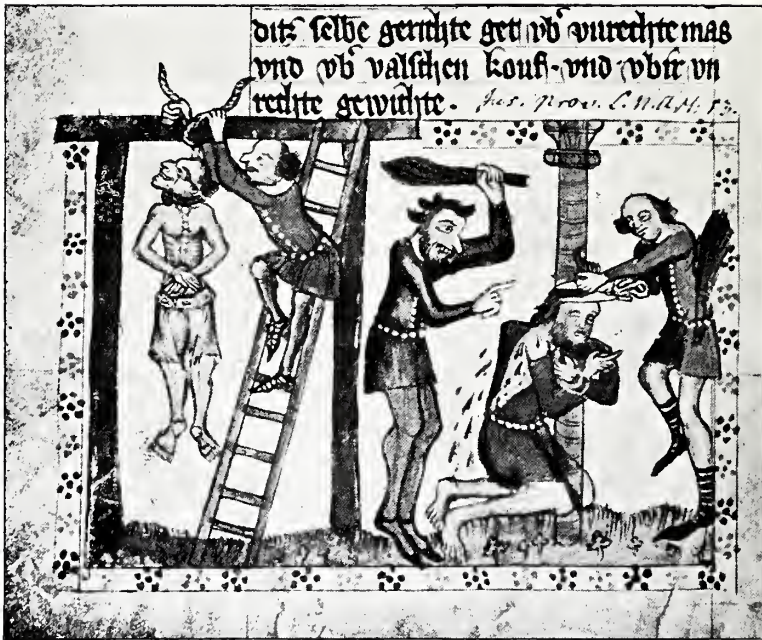 ditz selbe gerichte get vb' vnrechte mas
vnd vb' valschen kouff · vnd vbir vn
rechte gewichte .
Jus. prov.